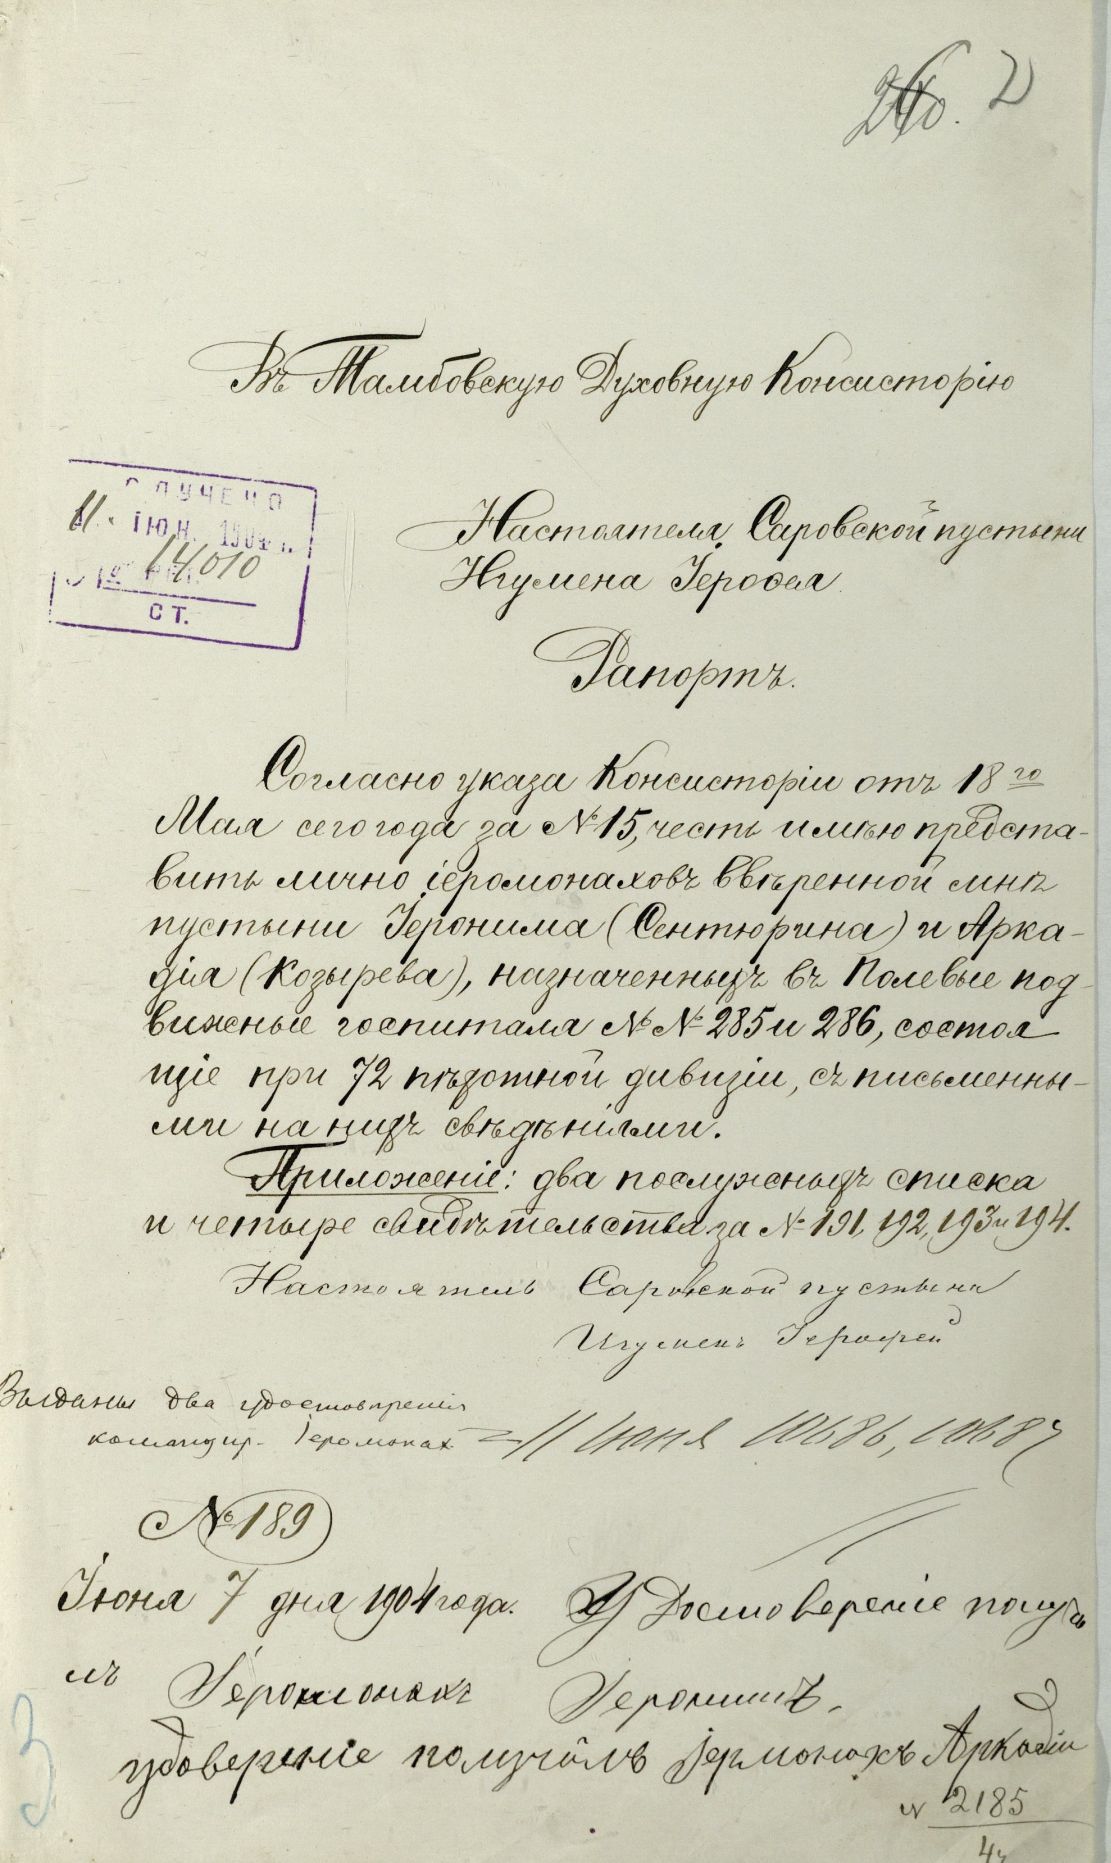 2
Въ Тамбовскую Духовную Консисторію
ПОЛУЧЕНО
11. ІЮН. 1904 г.
14010
СТ.
Настоятеля Саровской пустыни
Игумена Іероѳея
Рапортъ.
Согласно указа Консисторіи отъ 18го
Мая сего года за № 15, честь имѣю предста-
вить лично іеромонаховъ ввѣренной мнѣ
пустыни Іеронима (Сентюрина) и Арка-
дія (Козырева), назначенныхъ въ Полевые под-
вижные госпиталя №№ 285 и 286, состоя
щіе при 72 пѣхотной дивизіи, съ письменны-
ми на нихъ свѣдѣніями.
Приложеніе: два послужныхъ списка
и четыре свидѣтельства за № 191, 192, 193 и 194.
Настоятель Саровской пустыни
Игуменъ Іероѳей
Выданы два удостовѣренія
командир. Іеромонах 11 Іюня 10686, 10687
№ 189
Іюня 7 дня 1904 года.
Удостовереніе получи
лъ Іеромонахъ Іеронимъ.
удоверение получилъ іермонахъ Аркадіи
№ 2185
3